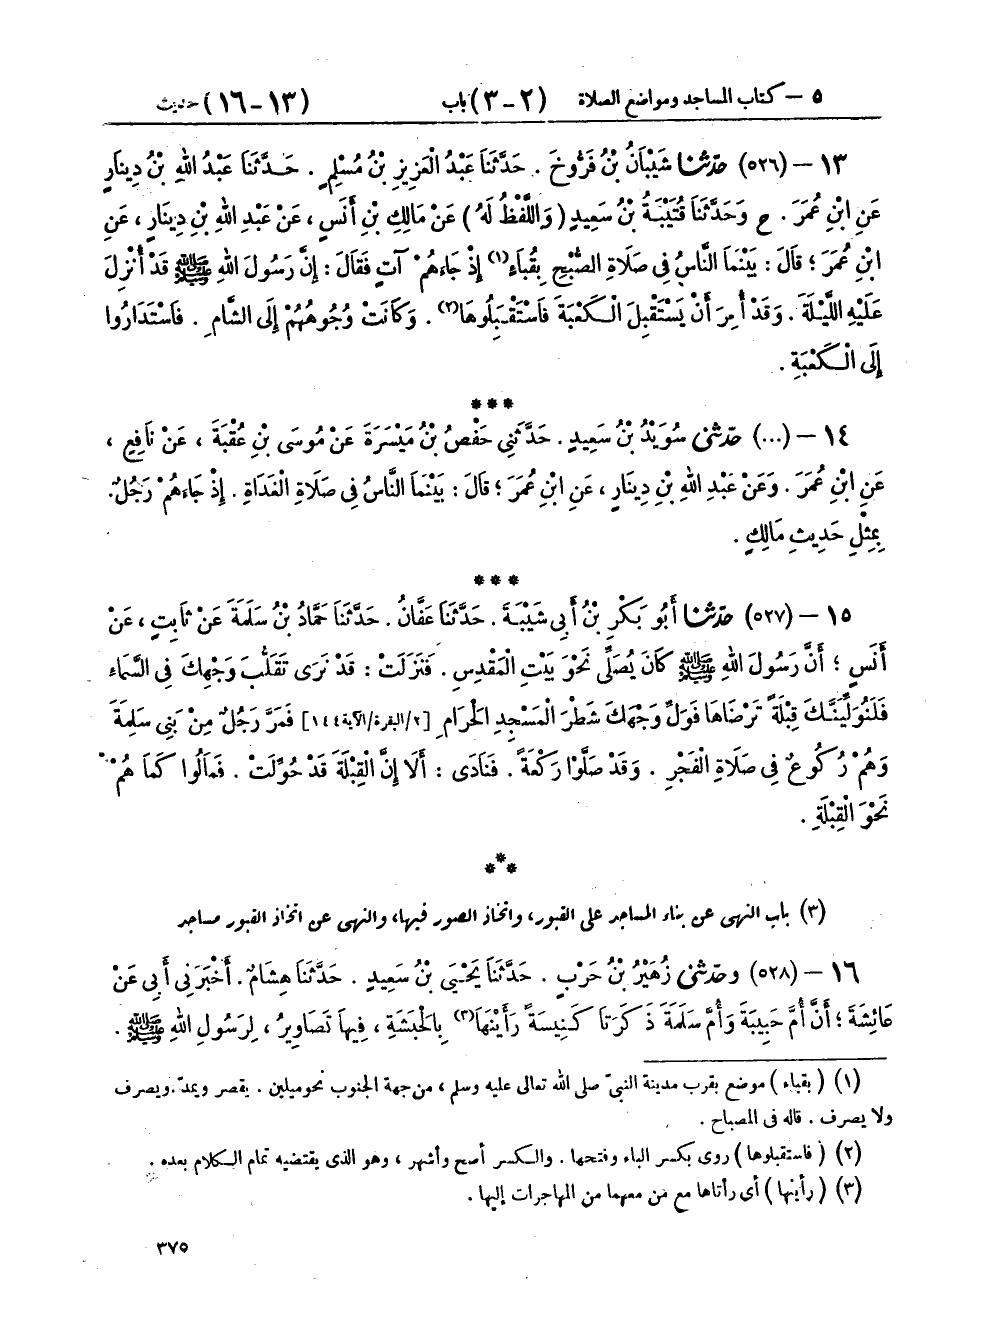 ٥ - كتاب المساجد ومواضع الصلاة (٢ - ٣) باب (١٣ - ١٦) حديث
١٣ - (٥٢٦) حَدَّثَنَا شَيْبَانُ بْنُ فَرُّوخَ . حَدَّثَنَا عَبْدُ الْعَزِيزِ بْنُ مُسْلِمٍ . حَدَّثَنَا عَبْدُ اللهِ بْنُ دِينَارٍ
عَنِ ابْنِ عُمَرَ . ح وَحَدَّثَنَا قُتَيْبَةُ بْنُ سَعِيدٍ ( وَاللَّفْظُ لَهُ ) عَنْ مَالِكِ بْنِ أَنَسٍ ، عَنْ عَبْدِ اللهِ بْنِ دِينَارٍ ، عَنِ
ابْنِ عُمَرَ ؛ قَالَ : بَيْنَمَا النَّاسُ فِي صَلَاةِ الصُّبْحِ بِقُبَاءٍ(١) إِذْ جَاءَهُمْ آتٍ فَقَالَ : إِنَّ رَسُولَ اللهِ ﷺ قَدْ أُنْزِلَ
عَلَيْهِ اللَّيْلَةَ . وَقَدْ أُمِرَ أَنْ يَسْتَقْبِلَ الْكَعْبَةَ فَاسْتَقْبِلُوهَا(٢) . وَكَانَتْ وُجُوهُهُمْ إِلَى الشَّامِ . فَاسْتَدَارُوا
إِلَى الْكَعْبَةِ .
***
١٤ - (...) حَدَّثَنِي سُوَيْدُ بْنُ سَعِيدٍ . حَدَّثَنِي حَفْصُ بْنُ مَيْسَرَةَ عَنْ مُوسَى بْنِ عُقْبَةَ ، عَنْ نَافِعٍ ،
عَنِ ابْنِ عُمَرَ . وَعَنْ عَبْدِ اللهِ بْنِ دِينَارٍ ، عَنِ ابْنِ عُمَرَ ؛ قَالَ : بَيْنَمَا النَّاسُ فِي صَلَاةِ الْغَدَاةِ . إِذْ جَاءَهُمْ رَجُلٌ .
بِمِثْلِ حَدِيثِ مَالِكٍ .
***
١٥ - (٥٢٧) حَدَّثَنَا أَبُو بَكْرِ بْنُ أَبِي شَيْبَةَ . حَدَّثَنَا عَفَّانُ . حَدَّثَنَا حَمَّادُ بْنُ سَلَمَةَ عَنْ ثَابِتٍ ، عَنْ
أَنَسٍ ؛ أَنَّ رَسُولَ اللهِ ﷺ كَانَ يُصَلِّي نَحْوَ بَيْتِ الْمَقْدِسِ . فَنَزَلَتْ : قَدْ نَرَى تَقَلُّبَ وَجْهِكَ فِي السَّمَاءِ
فَلَنُوَلِّيَنَّكَ قِبْلَةً تَرْضَاهَا فَوَلِّ وَجْهَكَ شَطْرَ الْمَسْجِدِ الْحَرَامِ [٢/البقرة/الآية١٤٤] فَمَرَّ رَجُلٌ مِنْ بَنِي سَلِمَةَ
وَهُمْ رُكُوعٌ فِي صَلَاةِ الْفَجْرِ . وَقَدْ صَلَّوْا رَكْعَةً . فَنَادَى : أَلَا إِنَّ الْقِبْلَةَ قَدْ حُوِّلَتْ . فَمَالُوا كَمَا هُمْ
نَحْوَ الْقِبْلَةِ .
***
(٣) باب النهى عن بناء المساجد على القبور، واتخاذ الصور فيها، والنهى عن اتخاذ القبور مساجد
١٦ - (٥٢٨) وحَدَّثَنِي زُهَيْرُ بْنُ حَرْبٍ . حَدَّثَنَا يَحْيَى بْنُ سَعِيدٍ . حَدَّثَنَا هِشَامٌ . أَخْبَرَنِي أَبِي عَنْ
عَائِشَةَ ؛ أَنَّ أُمَّ حَبِيبَةَ وَأُمَّ سَلَمَةَ ذَكَرَتَا كَنِيسَةً رَأَيْنَهَا(٣) بِالْحَبَشَةِ ، فِيهَا تَصَاوِيرُ ، لِرَسُولِ اللهِ ﷺ .
(١) ( بقباء ) موضع بقرب مدينة النبىّ صلى الله تعالى عليه وسلم ، من جهة الجنوب نحو ميلين . يقصر ويمدّ . ويصرف
ولا يصرف . قاله فى المصباح .
(٢) ( فاستقبلوها ) روى بكسر الباء وفتحها . والكسر أصح وأشهر ، وهو الذى يقتضيه تمام الكلام بعده .
(٣) ( رأينها ) أى رأتاها مع من معهما من المهاجرات إليها .
٣٧٥